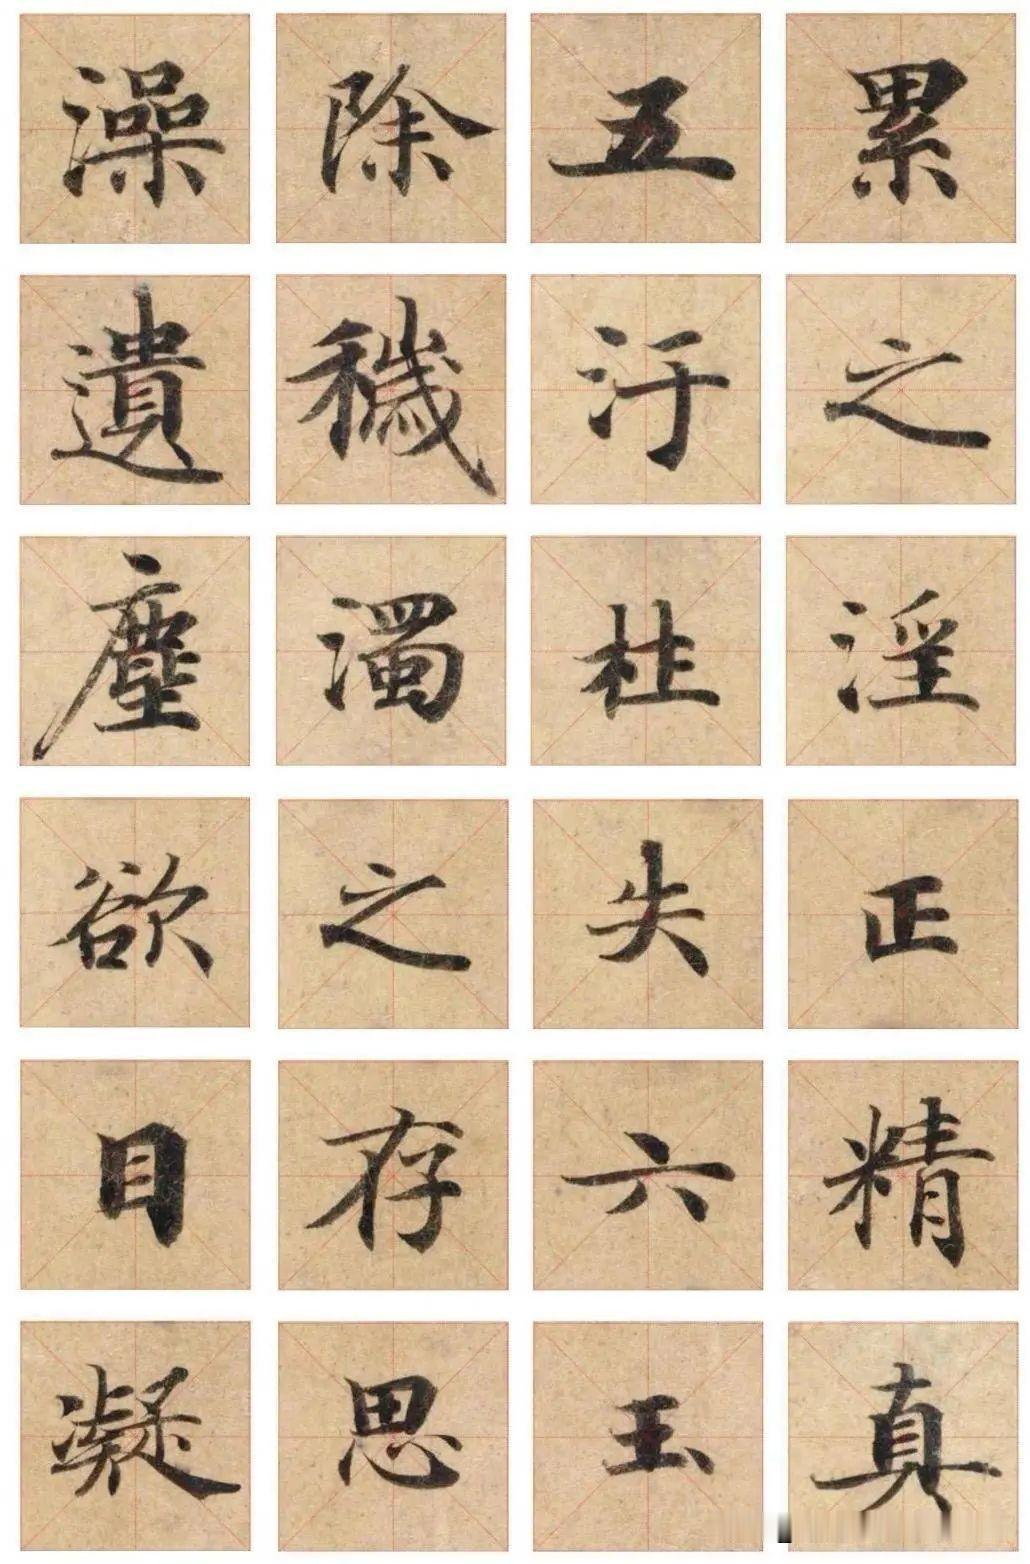 澡除五累
遺穢汙之
塵濁杜淫
欲之失正
目存六精
凝思玉真